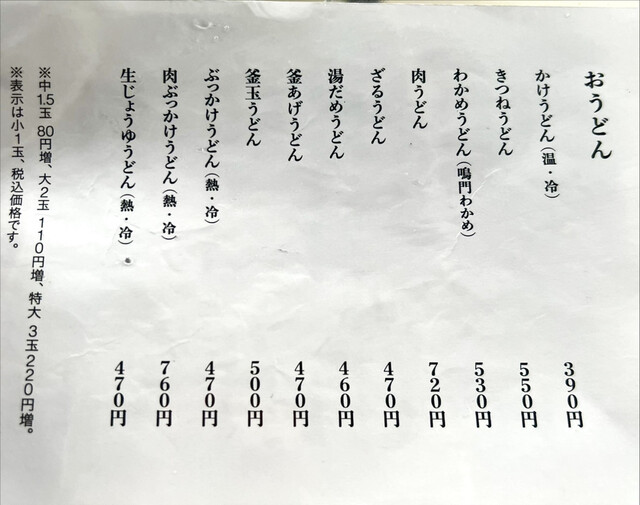 おうどん
かけうどん(温・冷) 390円
きつねうどん 550円
わかめうどん(鳴門わかめ) 530円
肉うどん 720円
ざるうどん 470円
湯だめうどん 460円
釜あげうどん 470円
釜玉うどん 500円
ぶっかけうどん(熱・冷) 470円
肉ぶっかけうどん(熱・冷) 760円
生じょうゆうどん(熱・冷) 470円
※中1.5玉 80円増、大2玉 110円増、特大 3玉220円増。
※表示は小1玉、税込価格です。